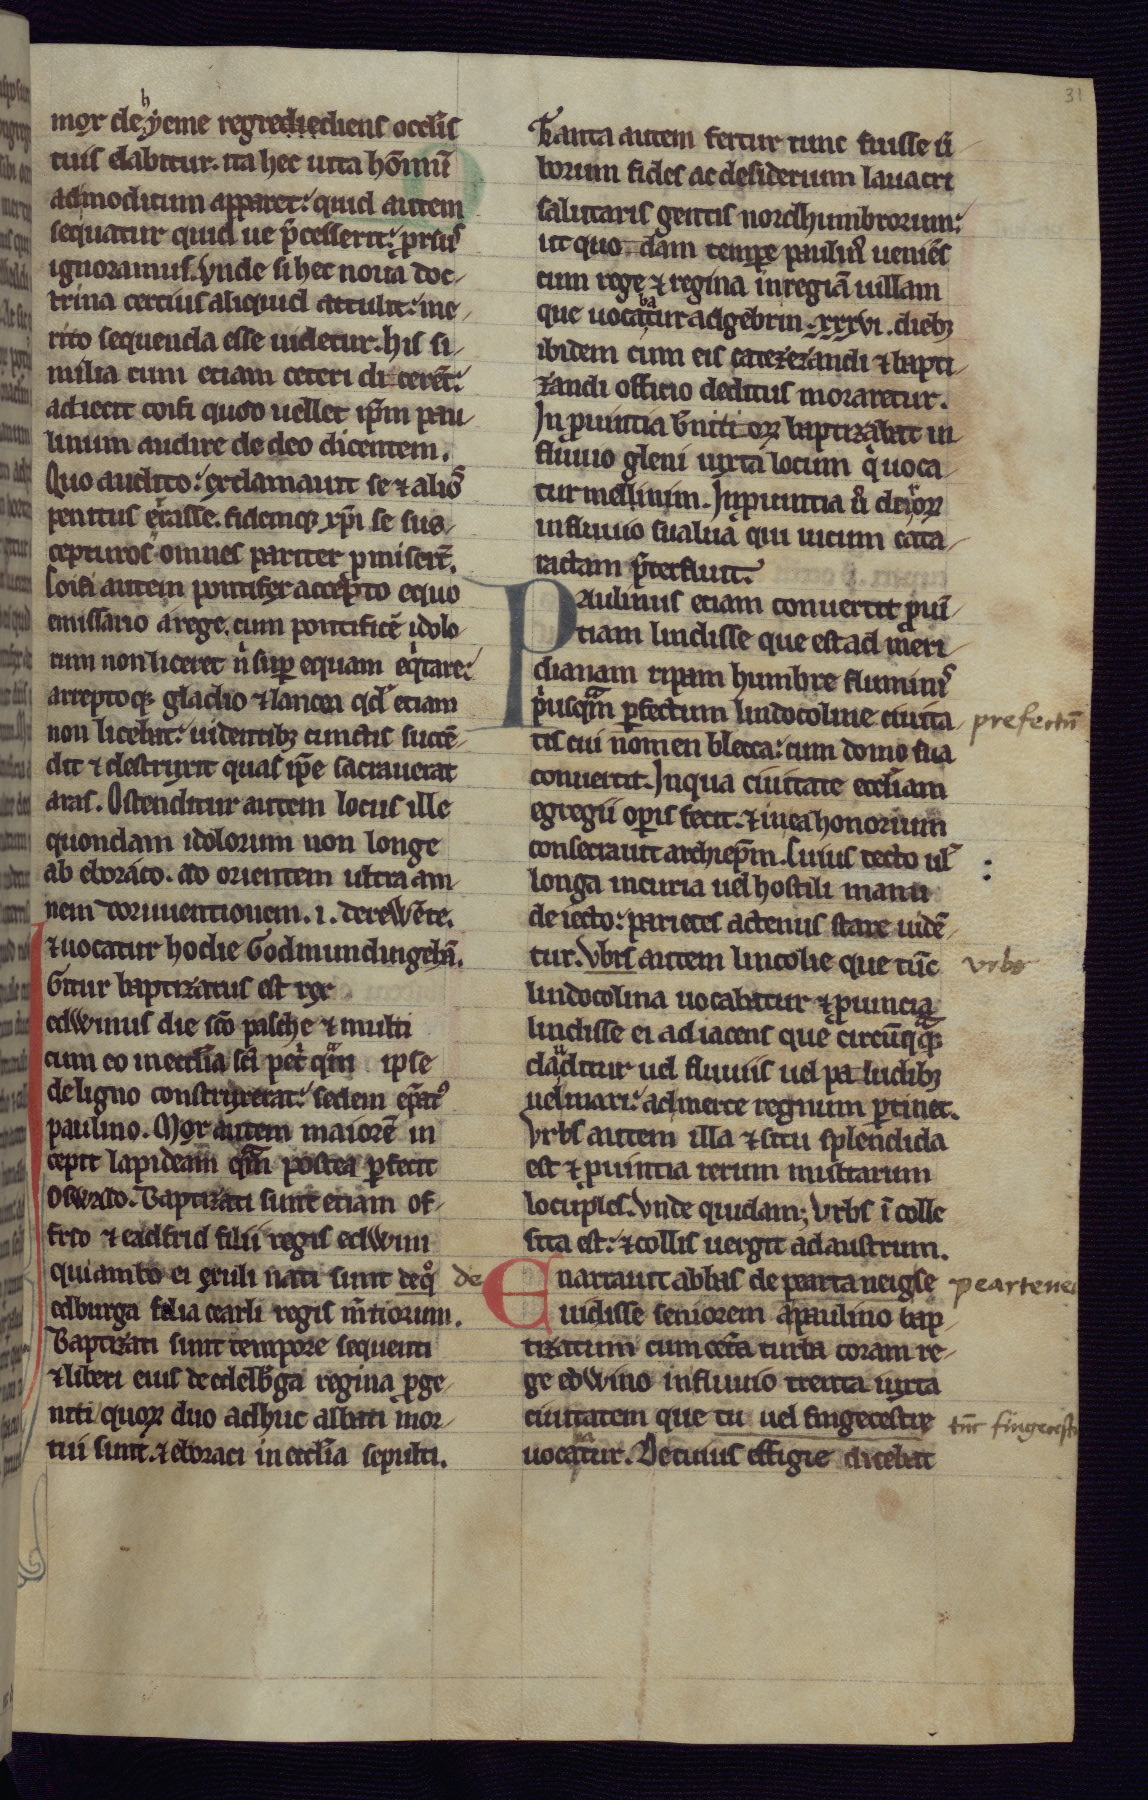 31
mox de hyeme regrediediens oculis
tuis elabitur. ita hec uita hominū
ad modicum apparet: quid autem
sequatur quid ue p̄cesserit: prsus
ignoramus. Vnde si hec noua doc-
trina cercius aliquid attulit: me-
rito sequenda esse uidetur. his si-
milia cum etiam ceteri dicerēt:
adiecit coifi quod uellet ip̄m pau
linum audire de deo dicentem.
Quo audito: exclamauit se ⁊ alios
penitus errasse. fidemq; xp̄i se sus-
cepturos omnes pariter pmiserūt.
Coifi autem pontifex accepto equo
emissario a rege. cum pontificē idolo
rum non liceret n̄ sup equam eqitare:
arreptoq; gladio ⁊ lancea qd̄ etiam
non licebat: uidentib; cunctis succē-
dit ⁊ destruxit quas ip̄e sacrauerat
aras. Ostenditur autem locus ille
quondam idolorum non longe
ab eboraco. ad orientem ultra am-
nem doruuentionem. i. derewēte.
⁊ uocatur hodie Godmundingehā.
Gitur baptizatus est rex
edwinus die sc̄o pasche ⁊ multi
cum eo in ecclīa sc̄i pet̄ quam ipse
de ligno construxerat: sedem ep̄at'
paulino. Mox autem maiorē in
cepit lapideam quam postea pfecit
Oswald. Baptizati sunt etiam of-
frid ⁊ eadfrid filii regis edwini
qui ambo ei exuli nati sunt deq̊ de
edburga filia cearli regis m̄tiorum.
Baptizati sunt tempore sequenti
⁊ liberi eius de edelb'ga regina pge-
niti quoꝝ duo adhuc albati mor-
tui sunt. ⁊ eboraci in ecclīa sepulti.
Tanta autem fertur tunc fuisse ū
borum fides ac desiderium lauacri
salutaris gentis nordhumbrorum:
ut quodam tempe paulin' ueniēs
cum rege ⁊ regina in regiā uillam
que uocabatur adgebrin. xxxvi. dieb;
ibidem cum eis catezezandi ⁊ bapti-
zandi officio deditus moraretur.
In puintia bnitioꝝ baptizabat in
fluuio gleni iuxta locum q' uoca
tur mellinim. In puintia ū deiroꝝ
in fluuio sualua qui uicum cata-
ractam p̄terfluit.
Paulinus etiam conuertit puī-
tiam lindisse que est ad meri-
dianam ripam humbre fluminis
p'usquam pfectum lindocoline ciuita- prefectū
tis cui nomen blecca: cum domo sua
conuertit. In qua ciuitate eccliam
egregii opis fecit. ⁊ in ea honorium
consecrauit archiep̄m. Cuius tecto ul'
longa incuria uel hostili manu
deiecto: parietes actenus stare uidē-
tur. Vrbs autem lincolie que tūc vrbs
lindocolina uocabatur ⁊ puincia
lindisse ei adiacens que circūquaq;
clauditur uel fluuiis uel paludib;
uel mari: ad merce regnum ptinet.
Vrbs autem illa ⁊ situ splendida
est ⁊ puintia rerum multarum
locuples. Vnde quidam; Vrbs ī colle
sita est: ⁊ collis uergit ad austrum.
Enarrauit abbas de pearta neigse peartenei
uidisse seniorem a paulino bap-
tizatum cum cet̄a turba coram re-
ge edwino in fluuio trenta iuxta
ciuitatem que tū uel fingecestre tūc fingecestr
uocatur. De cuius effigie dicebat